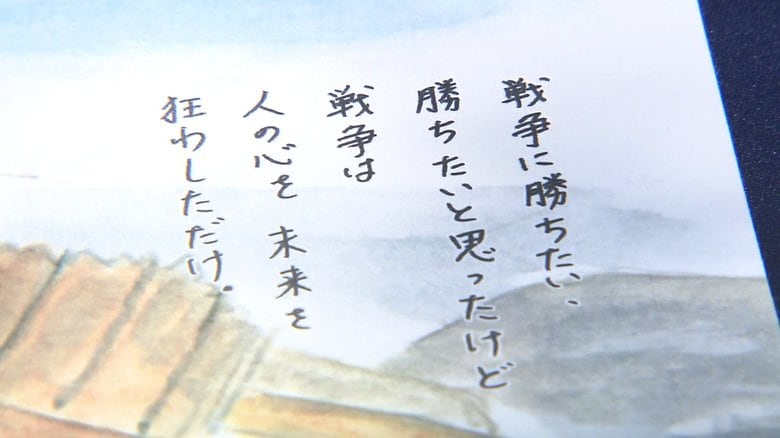 戦争に勝ちたい、
勝ちたいと思ったけど
戦争は
人の心を 未来を
狂わしただけ。